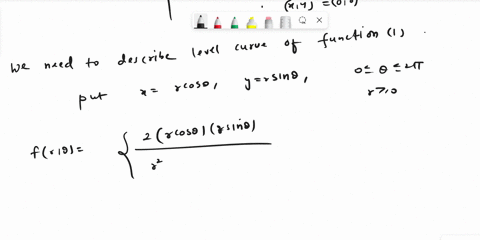 (x,y) = (0,0)
We need to describe level curve of function (1).
put x = rcosθ, y = rsinθ, 0 ≤ θ ≤ 2π
r ≥ 0
f(r,θ) = { 2(rcosθ)(rsinθ)
r²